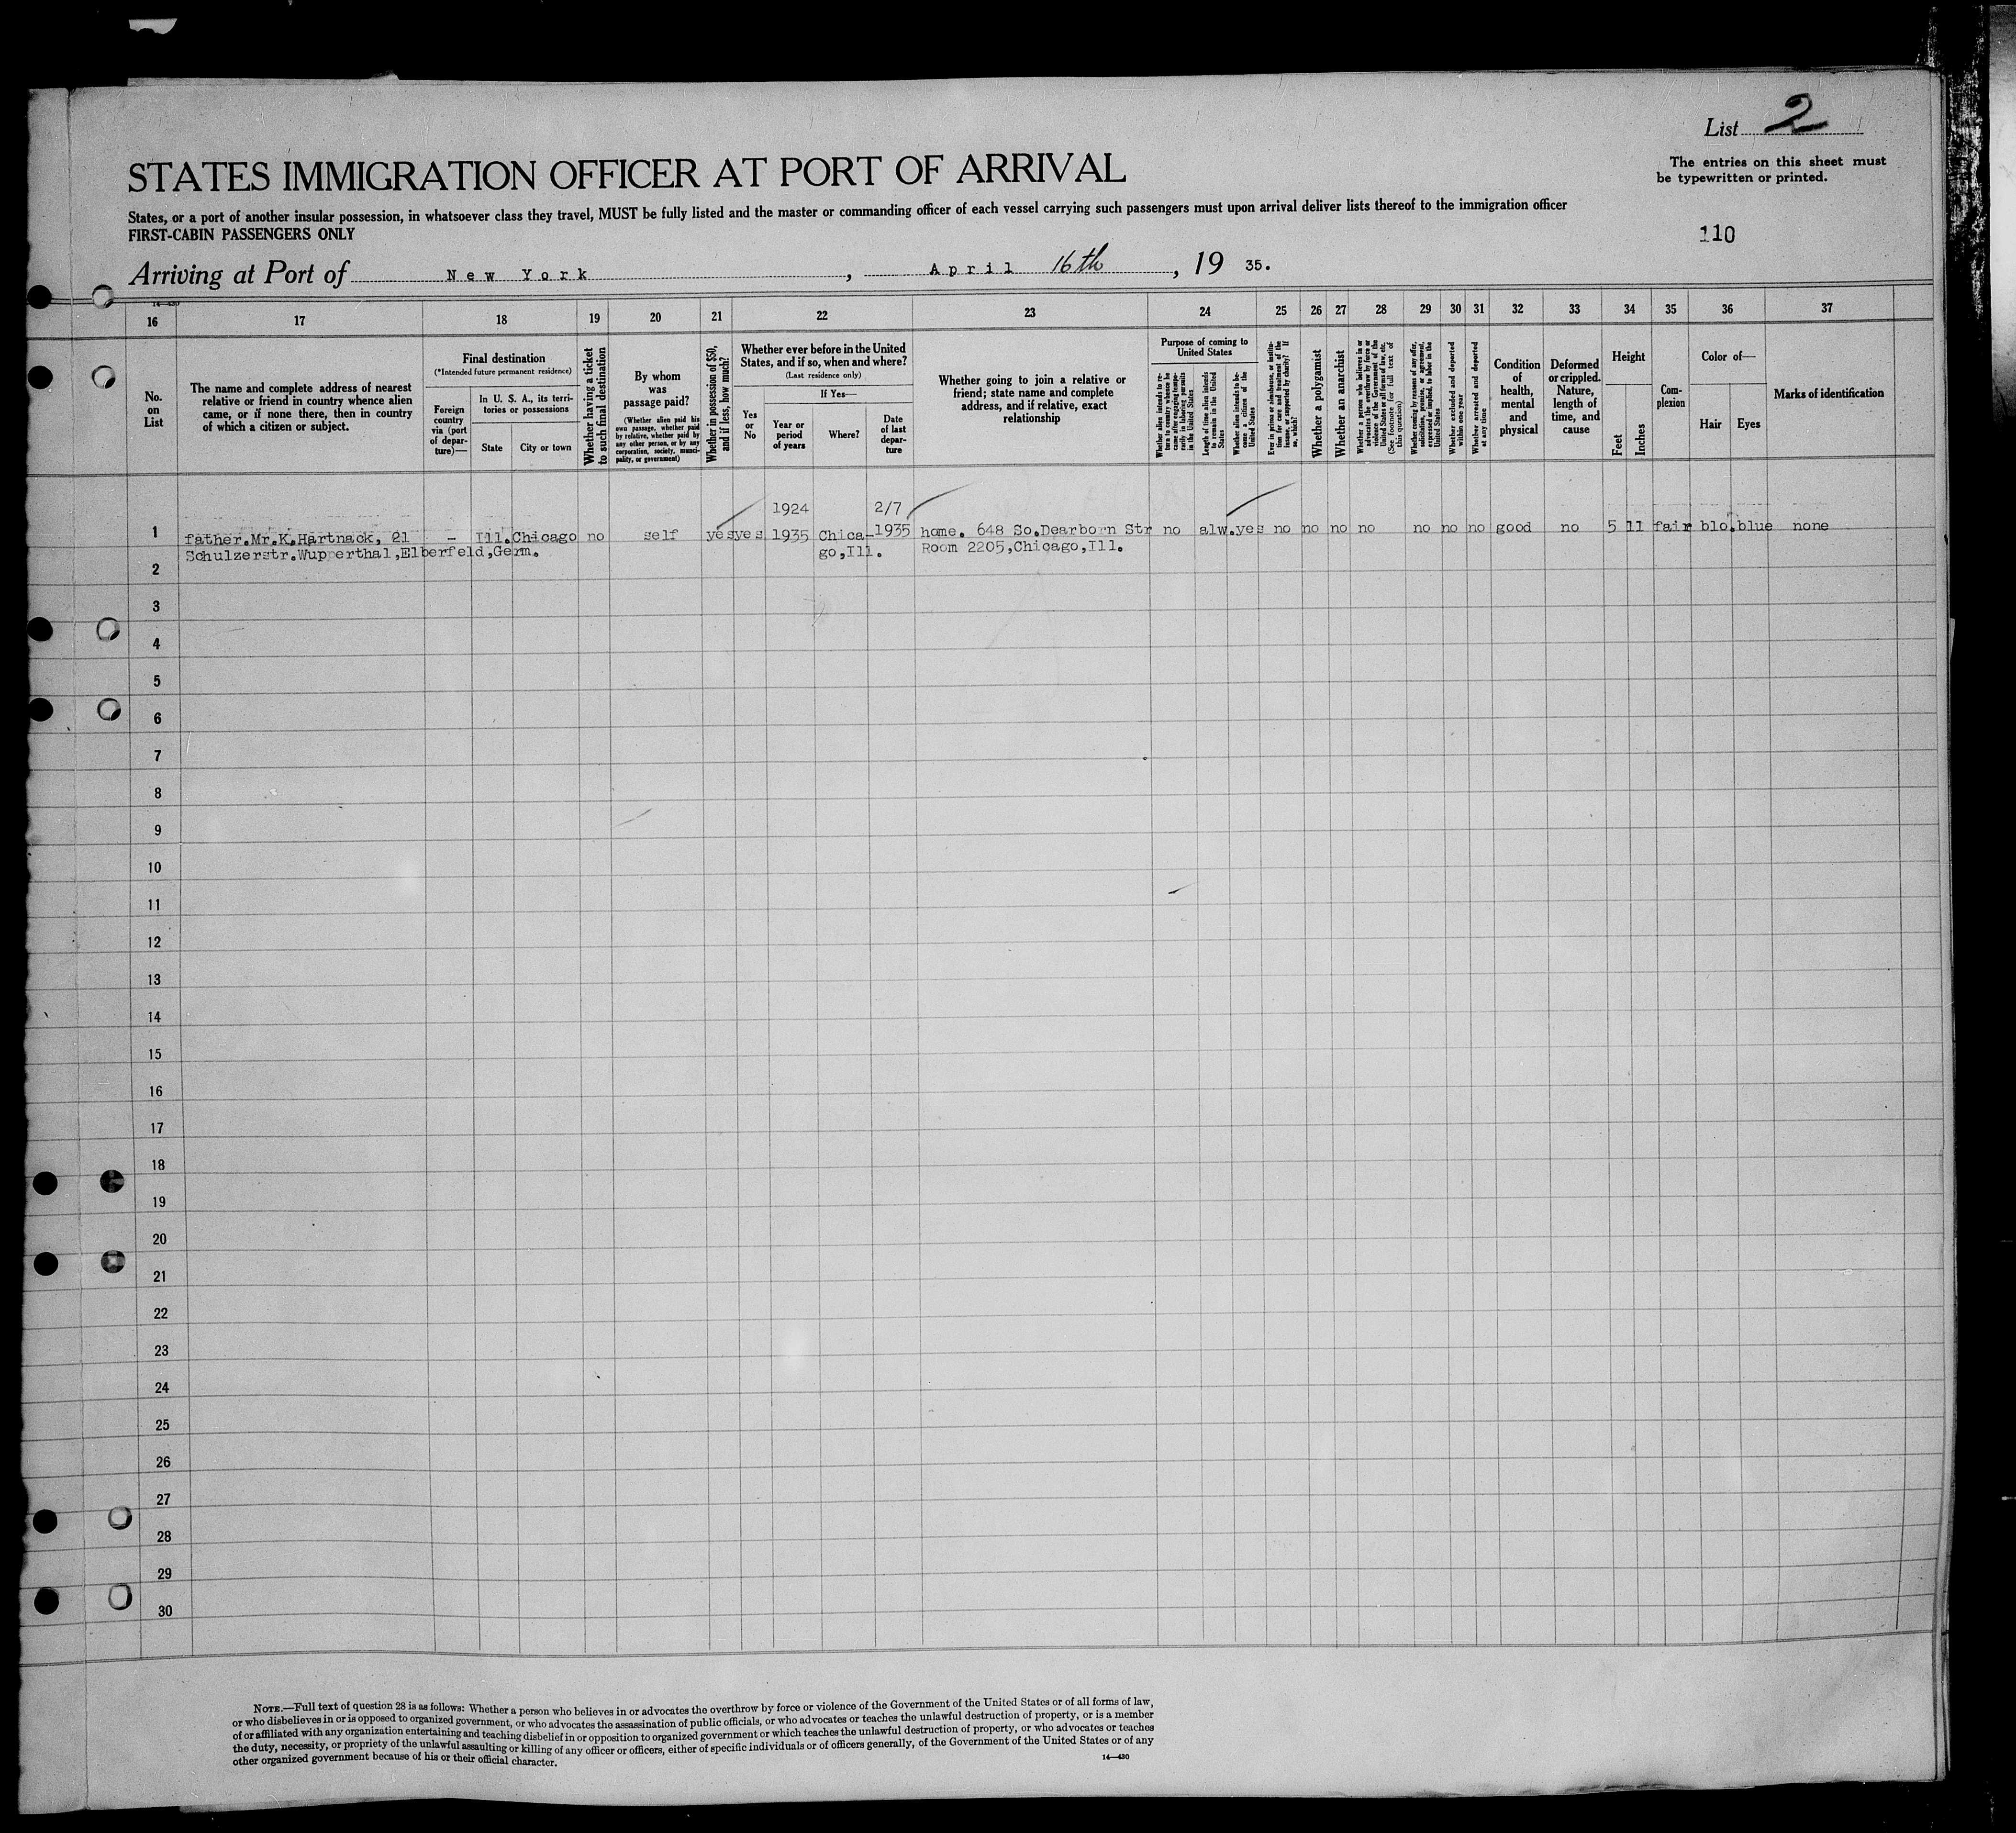 List 2
STATES IMMIGRATION OFFICER AT PORT OF ARRIVAL
The entries on this sheet must
be typewritten or printed.
States, or a port of another insular possession, in whatsoever class they travel, MUST be fully listed and the master or commanding officer of each vessel carrying such passengers must upon arrival deliver lists thereof to the immigration officer
FIRST-CABIN PASSENGERS ONLY
110
Arriving at Port of New York, April 16th, 19 35.
14—430
16 17 18 19 20 21 22 23 24 25 26 27 28 29 30 31 32 33 34 35 36 37
No.
on
List
The name and complete address of nearest
relative or friend in country whence alien
came, or if none there, then in country
of which a citizen or subject.
Final destination
(*Intended future permanent residence)
Foreign
country
via (port
of depar-
ture)—
In U. S. A., its terri-
tories or possessions
State
City or town
Whether having a ticket
to such final destination
By whom
was
passage paid?
(Whether alien paid his
own passage, whether paid
by relative, whether paid by
any other person, or by any
corporation, society, munici-
pality, or government)
Whether in possession of $50,
and if less, how much?
Whether ever before in the United
States, and if so, when and where?
(Last residence only)
Yes
or
No
If Yes—
Year or
period
of years
Where?
Date
of last
depar-
ture
Whether going to join a relative or
friend; state name and complete
address, and if relative, exact
relationship
Purpose of coming to
United States
Whether alien intends to re-
turn to country whence he
came after engaging tempo-
rarily in laboring pursuits
in the United States
Length of time alien intends
to remain in the United
States
Whether alien intends to be-
come a citizen of the
United States
Ever in prison or almshouse, or institu-
tion for care and treatment of the
insane, or supported by charity? If
so, which?
Whether a polygamist
Whether an anarchist
Whether a person who believes in or
advocates the overthrow by force or
violence of the Government of the
United States or all forms of law, etc.
(See footnote for full text of
this question)
Whether coming by reasons of any offer,
solicitation, promise, or agreement,
expressed or implied, to labor in the
United States
Whether excluded and deported
within one year
Whether arrested and deported
at any time
Condition
of
health,
mental
and
physical
Deformed
or crippled.
Nature,
length of
time, and
cause
Height
Feet
Inches
Com-
plexion
Color of—
Hair
Eyes
Marks of identification
1924 2/7
1 father.Mr.K.Hartnack, 21 - Ill. Chicago no self yes yes 1935 Chica- 1935 home. 648 So.Dearborn Str no alw. yes no no no no no no no good no 5 11 fair blo. blue none
Schulzerstr.Wupperthal,Elberfeld,Germ. go,Ill. Room 2205,Chicago,Ill.
2
3
4
5
6
7
8
9
10
11
12
13
14
15
16
17
18
19
20
21
22
23
24
25
26
27
28
29
30
NOTE.—Full text of question 28 is as follows: Whether a person who believes in or advocates the overthrow by force or violence of the Government of the United States or of all forms of law,
or who disbelieves in or is opposed to organized government, or who advocates the assassination of public officials, or who advocates or teaches the unlawful destruction of property, or is a member
of or affiliated with any organization entertaining and teaching disbelief in or opposition to organized government or which teaches the unlawful destruction of property, or who advocates or teaches
the duty, necessity, or propriety of the unlawful assaulting or killing of any officer or officers, either of specific individuals or of officers generally, of the Government of the United States or of any
other organized government because of his or their official character.
14—430